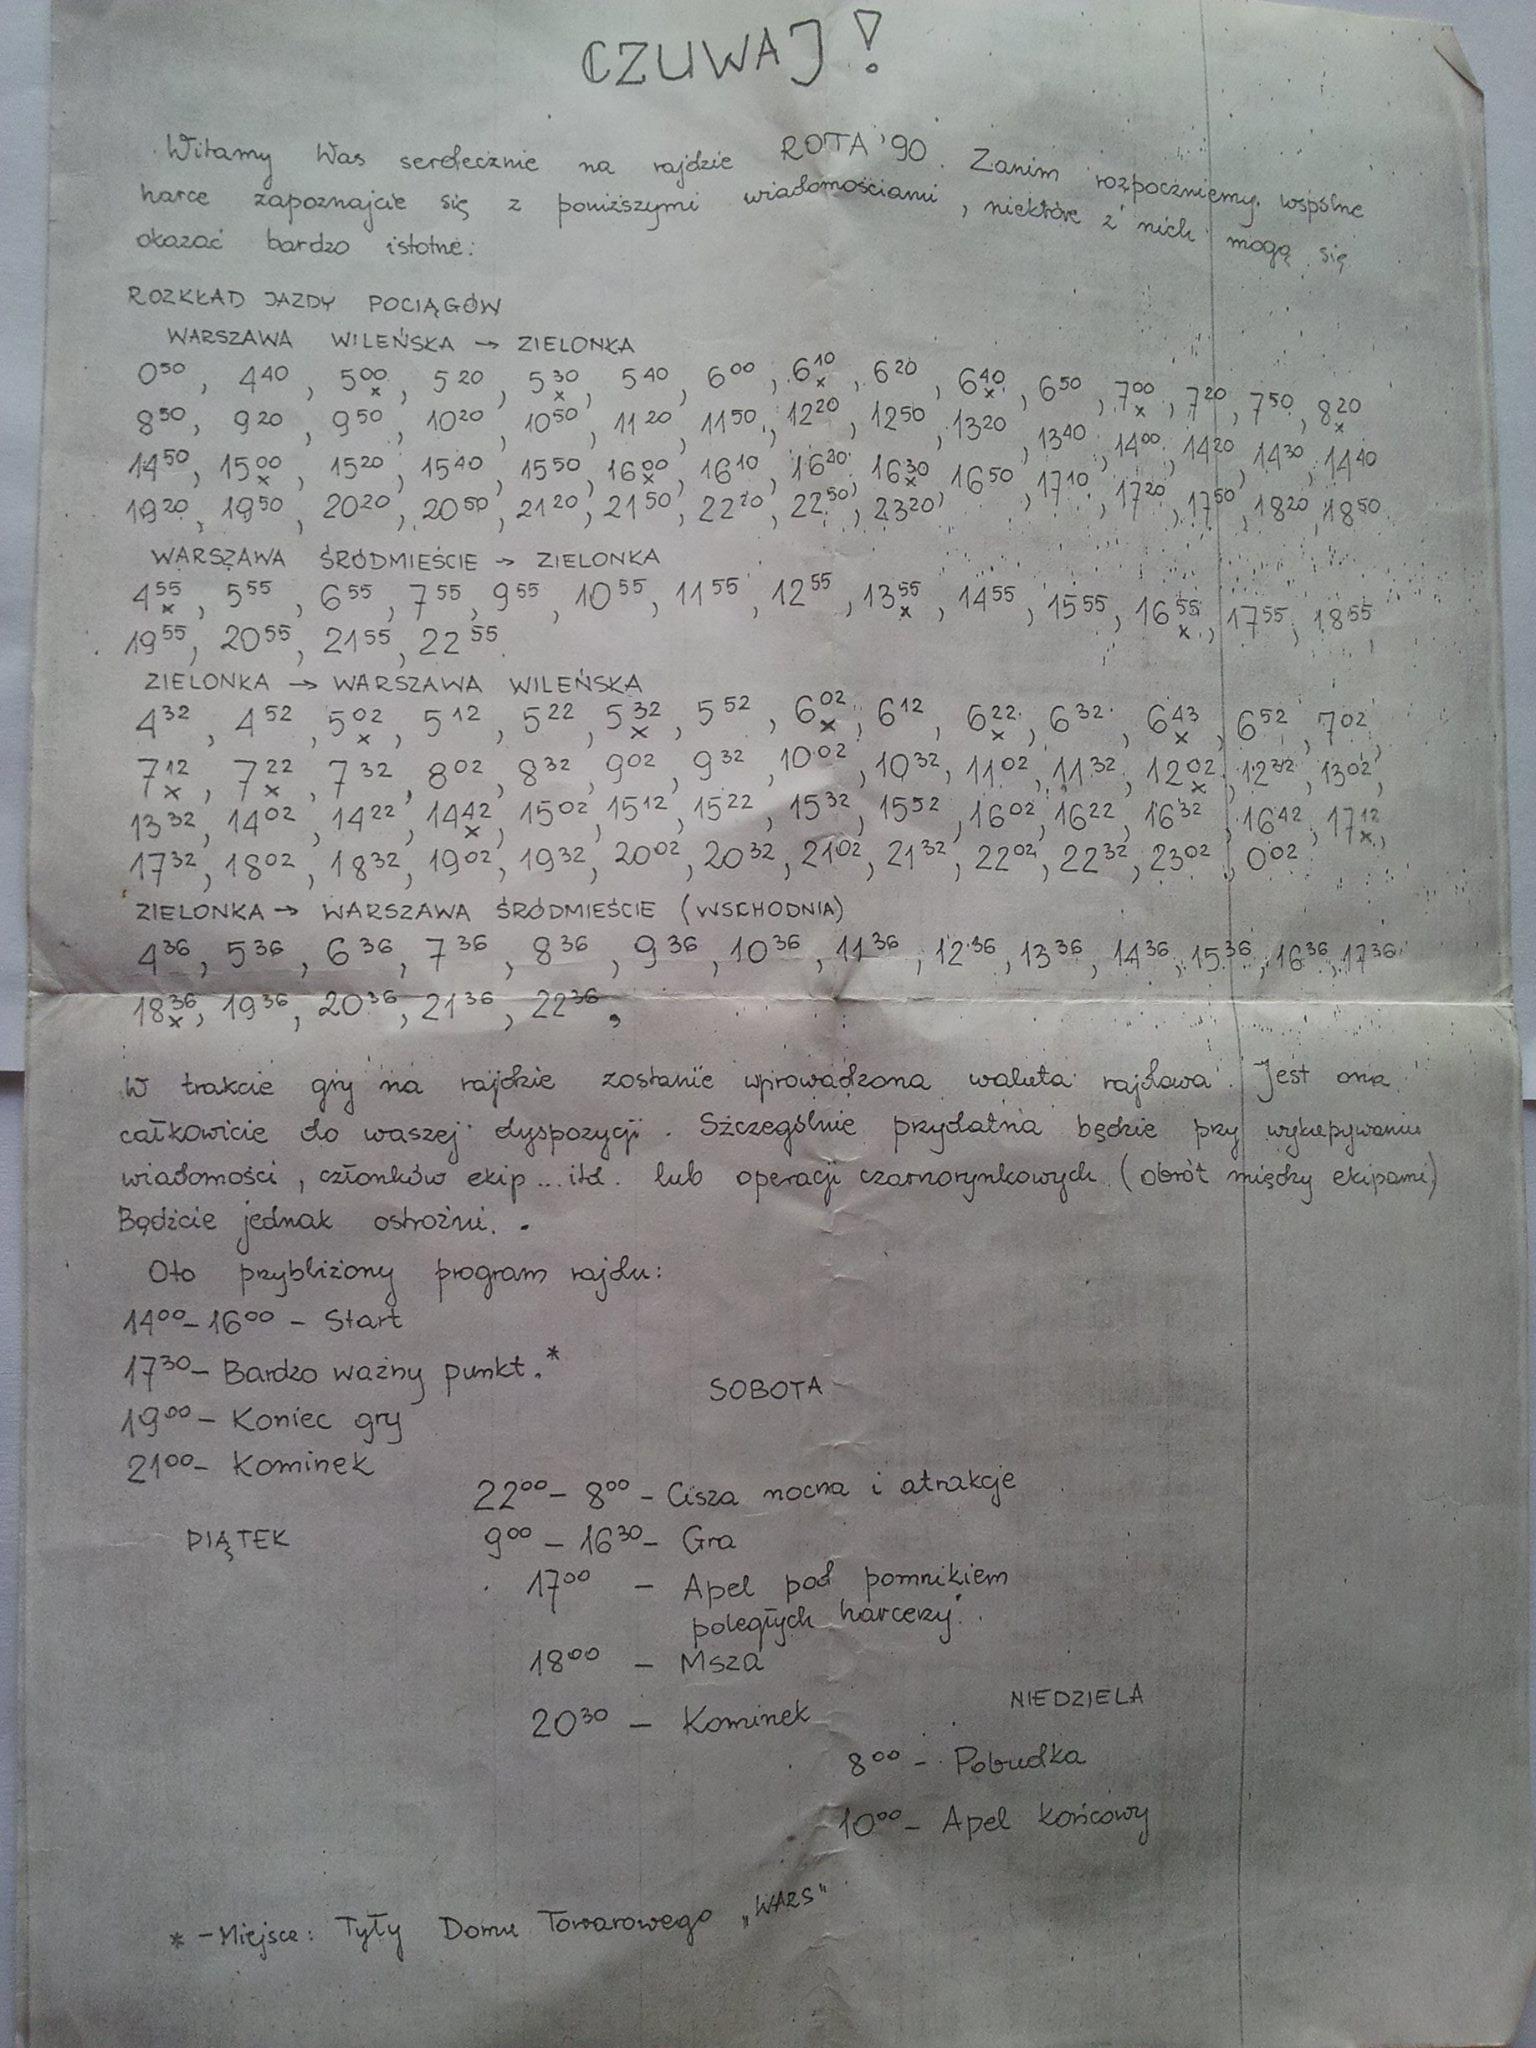 CZUWAJ!
Witamy Was serdecznie na rajdzie ROTA '90. Zanim rozpoczniemy wspólne
harce zapoznajcie się z poniższymi wiadomościami, niektóre z nich mogą się
okazać bardzo istotne:
ROZKŁAD JAZDY POCIĄGÓW
WARSZAWA WILEŃSKA → ZIELONKA
0⁵⁰, 4⁴⁰, 5⁰⁰x, 5²⁰, 5³⁰x, 5⁴⁰, 6⁰⁰, 6¹⁰x, 6²⁰, 6⁴⁰x, 6⁵⁰, 7⁰⁰x, 7²⁰, 7⁵⁰, 8²⁰x
8⁵⁰, 9²⁰, 9⁵⁰, 10²⁰, 10⁵⁰, 11²⁰, 11⁵⁰, 12²⁰, 12⁵⁰, 13²⁰, 13⁴⁰, 14⁰⁰, 14²⁰, 14³⁰, 14⁴⁰
14⁵⁰, 15⁰⁰x, 15²⁰, 15⁴⁰, 15⁵⁰, 16⁰⁰x, 16¹⁰, 16²⁰, 16³⁰x, 16⁵⁰, 17¹⁰, 17²⁰, 17⁵⁰, 18²⁰, 18⁵⁰
19²⁰, 19⁵⁰, 20²⁰, 20⁵⁰, 21²⁰, 21⁵⁰, 22²⁰, 22⁵⁰, 23²⁰
WARSZAWA ŚRÓDMIEŚCIE → ZIELONKA
4⁵⁵x, 5⁵⁵, 6⁵⁵, 7⁵⁵, 9⁵⁵, 10⁵⁵, 11⁵⁵, 12⁵⁵, 13⁵⁵x, 14⁵⁵, 15⁵⁵, 16⁵⁵x, 17⁵⁵, 18⁵⁵,
19⁵⁵, 20⁵⁵, 21⁵⁵, 22⁵⁵
ZIELONKA → WARSZAWA WILEŃSKA
4³², 4⁵², 5⁰²x, 5¹², 5²², 5³²x, 5⁵², 6⁰²x, 6¹², 6²²x, 6³², 6⁴³x, 6⁵², 7⁰²,
7¹²x, 7²²x, 7³², 8⁰², 8³², 9⁰², 9³², 10⁰², 10³², 11⁰², 11³², 12⁰²x, 12³², 13⁰²,
13³², 14⁰², 14²², 14⁴²x, 15⁰², 15¹², 15²², 15³², 15⁵², 16⁰², 16²², 16³², 16⁴², 17¹²x,
17³², 18⁰², 18³², 19⁰², 19³², 20⁰², 20³², 21⁰², 21³², 22⁰², 22³², 23⁰², 0⁰²
ZIELONKA → WARSZAWA ŚRÓDMIEŚCIE (WSCHODNIA)
4³⁶, 5³⁶, 6³⁶, 7³⁶, 8³⁶, 9³⁶, 10³⁶, 11³⁶, 12³⁶, 13³⁶, 14³⁶, 15³⁶, 16³⁶, 17³⁶
18³⁶x, 19³⁶, 20³⁶, 21³⁶, 22³⁶,
W trakcie gry na rajdzie zostanie wprowadzona waluta rajdowa. Jest ona
całkowicie do waszej dyspozycji. Szczególnie przydatna będzie przy wykupywaniu
wiadomości, członków ekip... itd. lub operacji czarnorynkowych (obrót między ekipami)
Bądźcie jednak ostrożni.
Oto przybliżony program rajdu:
14⁰⁰-16⁰⁰ - Start
17³⁰- Bardzo ważny punkt.*
SOBOTA
19⁰⁰- Koniec gry
21⁰⁰- Kominek
22⁰⁰- 8⁰⁰ - Cisza nocna i atrakcje
PIĄTEK
9⁰⁰ - 16³⁰- Gra
17⁰⁰ - Apel pod pomnikiem
poległych harcerzy.
18⁰⁰ - Msza
NIEDZIELA
20³⁰ - Kominek
8⁰⁰ - Pobudka
10⁰⁰- Apel końcowy
* - Miejsce: Tyły Domu Towarowego „WARS"